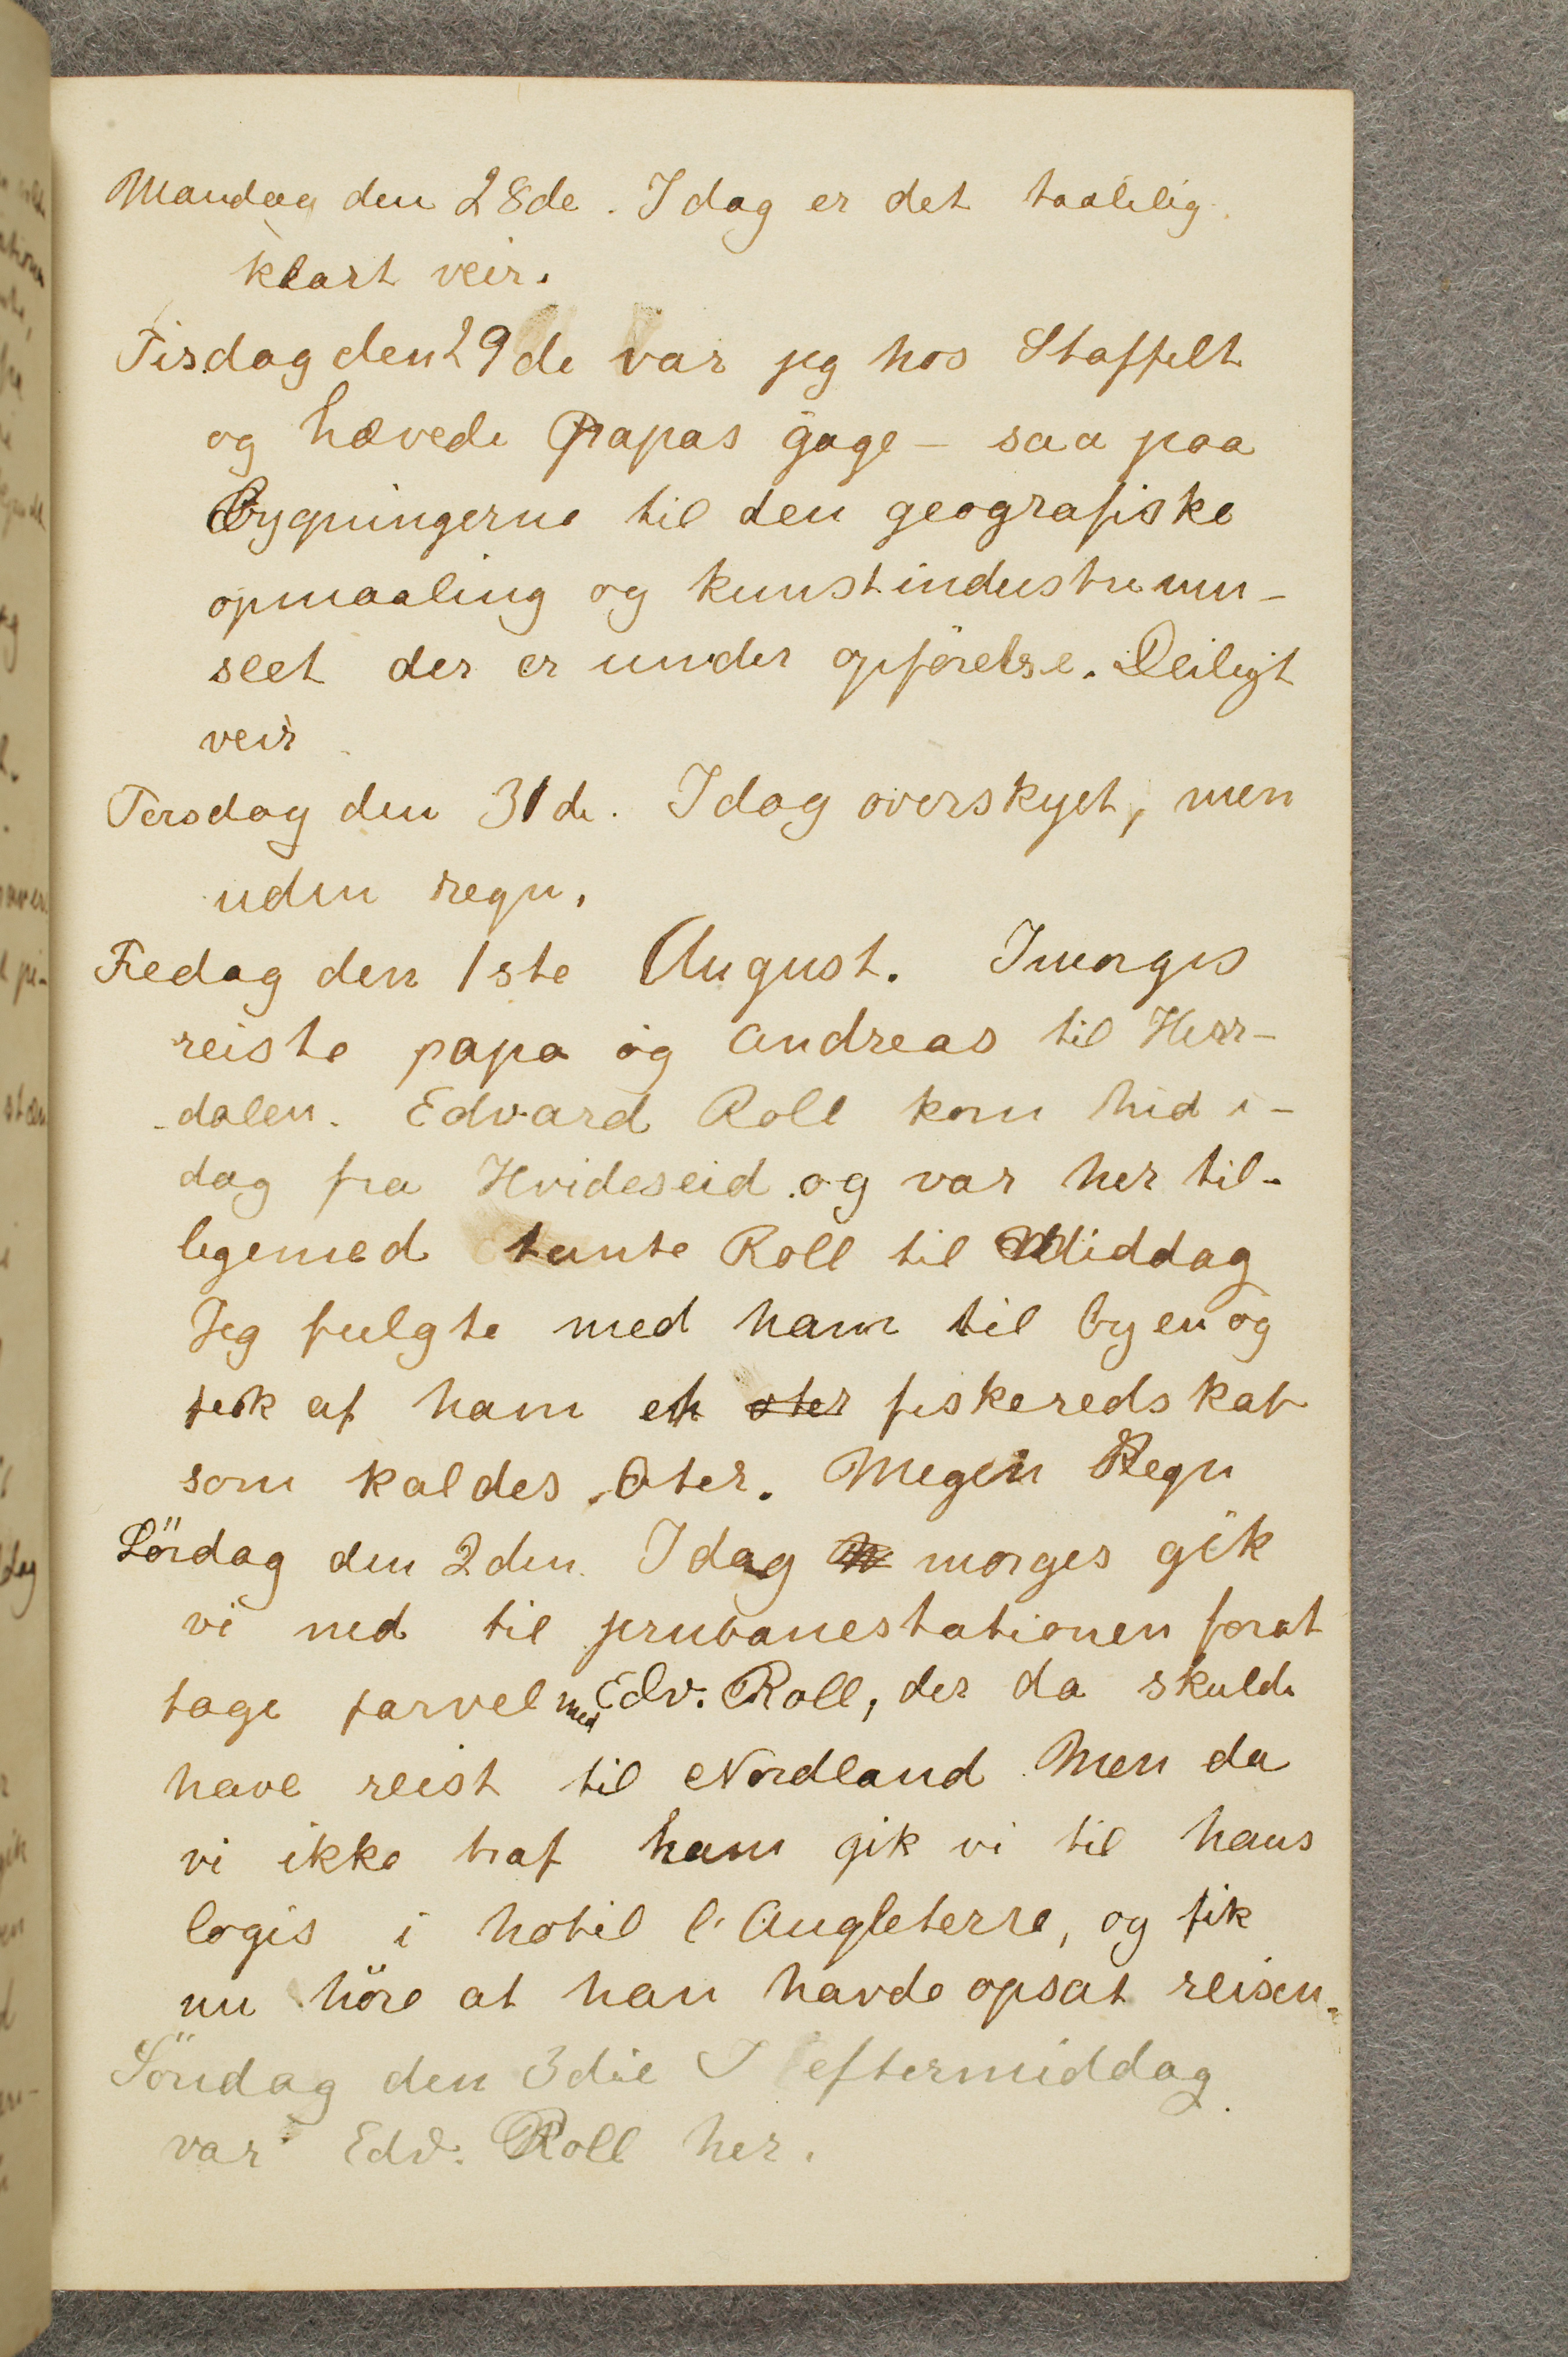 Mandag den 28de. Idag er det taalelig
klart veir.
Tisdag den 29de var jeg hos Staffelt
og hævede Papas gage – saa paa
Bygningerne til den geografiske
opmaaling og kunstindustrimu-
seet der er under opförelse. Deiligt
veir
Torsdag den 31de. Idag overskyet, men
uden regn.
Fredag den 1ste August. Imorges
reiste papa og Andreas til Herr-
dalen. Edvard Roll kom hid i-
dag fra Hvideseid og var her til-
ligemed tante Roll til Middag
Jeg fulgte med ham til byen og
fik af ham et oter fiskeredskap
som kaldes Oter. Megen Regn
Lördag den 2den. Idag morges gik
vi ned til jernbanestationen forat
tage farvel med Edv. Roll, der da skulde
have reist til Nordland. Men da
vi ikke traf ham gik vi til hans
logis i hotel l'Angleterre, og fik
nu höre at han havde opsat reisen.
Söndag den 3die I eftermiddag
var Edv. Roll her.